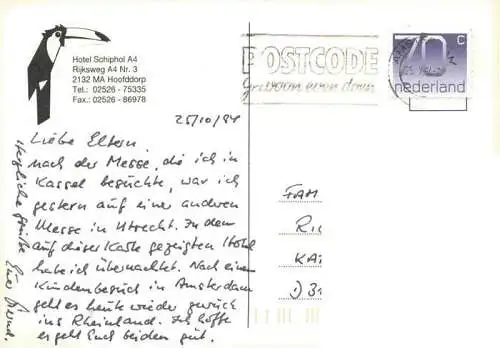 Hotel Schiphol A4
Rijksweg A4 Nr. 3
2132 MA Hoofddorp
Tel.: 02526 - 75335
Fax.: 02526 - 86978
POSTCODE
70 c
nederland
25/10/84
Liebe Eltern,
nach der Messe, die ich in
Kassel besuchte, war ich
gestern auf einer anderen
Messe in Utrecht. In dem
auf dieser Karte gezeigten Hotel
habe ich übernachtet. Nach einem
Kundenbesuch in Amsterdam
geht es heute wieder zurück
ins Rheinland. Ich hoffe
es geht Euch beiden gut.
Herzliche Grüße
Euer
FAM